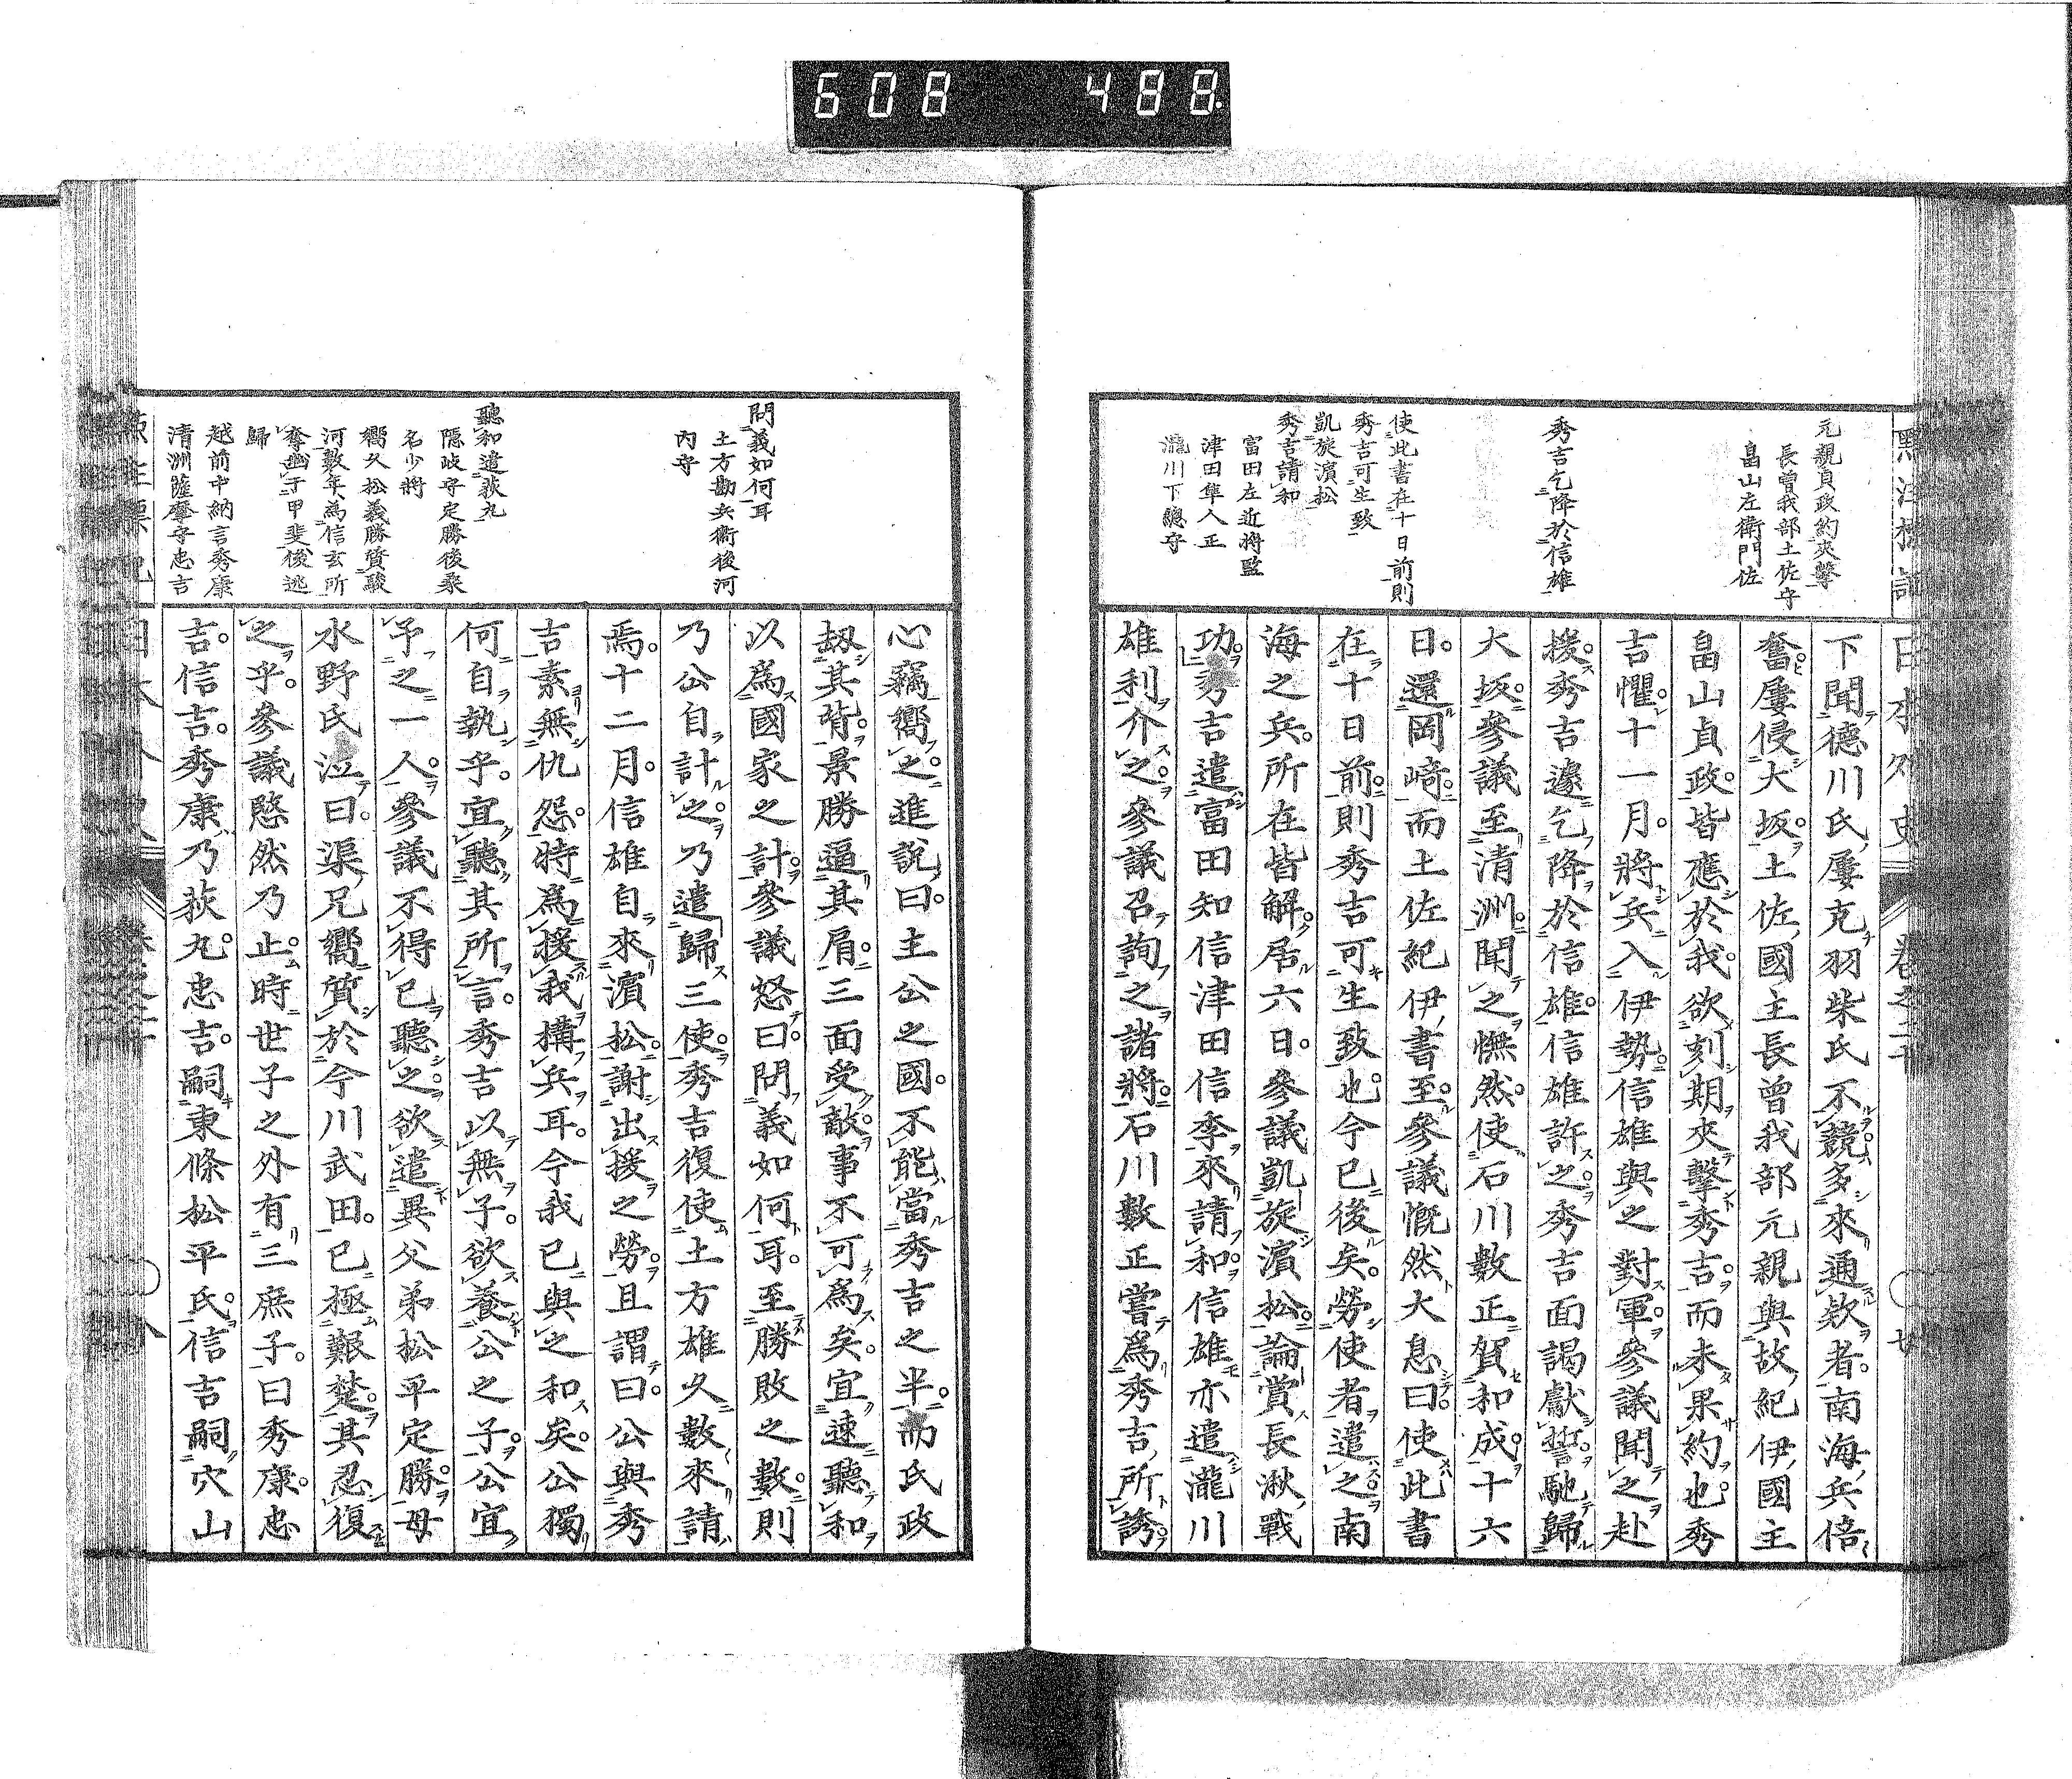 608 488.
日本外史
卷之二十
元親貞政約夾撃
長曾我部土佐守
畠山左衛門佐
秀吉乞降於信雄
使此書在十日前則
秀吉可生致
凱旋濱松
秀吉請和
富田左近將監
津田隼人正
瀧川下總守
下聞德川氏屢克羽柴氏不競多來通欵者南海兵倍
奮屢侵大坂土佐國主長曾我部元親與故紀伊國主
畠山貞政皆應於我欲刻期夾擊秀吉而未果約也秀
吉懼十一月將兵入伊勢信雄與之對軍參議聞之赴
援秀吉遽乞降於信雄信雄許之秀吉面謁獻誓馳歸
大坂參議至清洲聞之憮然使石川數正賀和成十六
日還岡崎而土佐紀伊書至參議慨然大息曰使此書
在十日前則秀吉可生致也今已後矣勞使者遣之南
海之兵所在皆解居六日參議凱旋濱松論賞長湫戰
功秀吉遣富田知信津田信季來請和信雄亦遣瀧川
雄利介之參議召詢之諸將石川數正嘗爲秀吉所誘
問義如何耳
土方勘兵衞後河
內守
聽和遣荻丸
隱岐守定勝後桑
名少將
嚮久松義勝質駿
河數年爲信玄所
奪幽于甲斐後逃
歸
越前中納言秀康
清洲薩摩守忠吉
心竊嚮之進說曰主公之國不能當秀吉之半而氏政
劫其背景勝逼其肩三面受敵事不可爲矣宜速聽和
以爲國家之計參議怒曰問義如何耳至勝敗之數則
乃公自計之乃遣歸三使秀吉復使土方雄久數來請
焉十二月信雄自來濱松謝出援之勞且謂曰公與秀
吉素無仇怨特爲援我構兵耳今我已與之和矣公獨
何自執乎宜聽其所言秀吉以無子欲養公之子公宜
予之一人參議不得已聽之欲遣異父弟松平定勝母
水野氏泣曰渠兄嚮質於今川武田已極艱楚其忍復
之乎參議愍然乃止時世子之外有三庶子曰秀康忠
吉信吉秀康乃荻丸忠吉嗣東條松平氏信吉嗣穴山